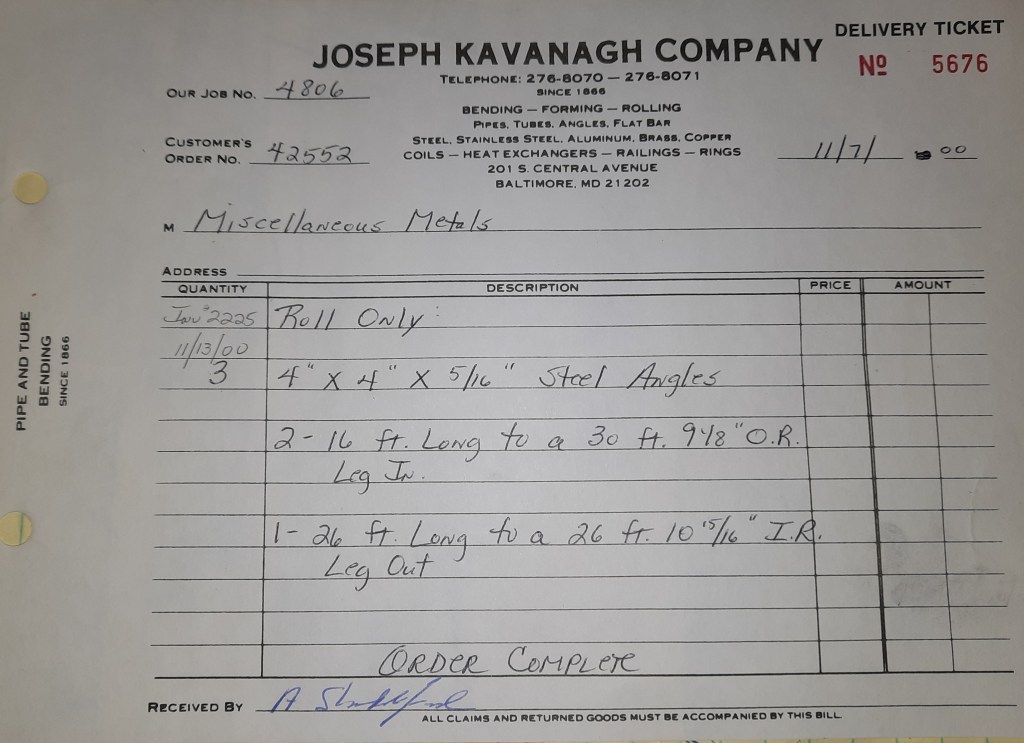 DELIVERY TICKET
JOSEPH KAVANAGH COMPANY
Nº 5676
TELEPHONE: 276-8070 — 276-8071
SINCE 1866
OUR JOB NO. 4806
BENDING — FORMING — ROLLING
PIPES, TUBES, ANGLES, FLAT BAR
STEEL, STAINLESS STEEL, ALUMINUM, BRASS, COPPER
CUSTOMER'S
ORDER NO. 42552
COILS — HEAT EXCHANGERS — RAILINGS — RINGS
11/7/ 00
201 S. CENTRAL AVENUE
BALTIMORE, MD 21202
M Miscellaneous Metals
ADDRESS
QUANTITY DESCRIPTION PRICE AMOUNT
Inv # 2225 Roll Only:
11/13/00
3 4" X 4" X 5/16" Steel Angles
2 - 16 ft. Long to a 30 ft. 9 1/8" O.R.
Leg In.
1 - 26 ft. Long to a 26 ft. 10 15/16" I.R.
Leg Out
ORDER COMPLETE
RECEIVED BY A
ALL CLAIMS AND RETURNED GOODS MUST BE ACCOMPANIED BY THIS BILL
PIPE AND TUBE
BENDING
SINCE 1866